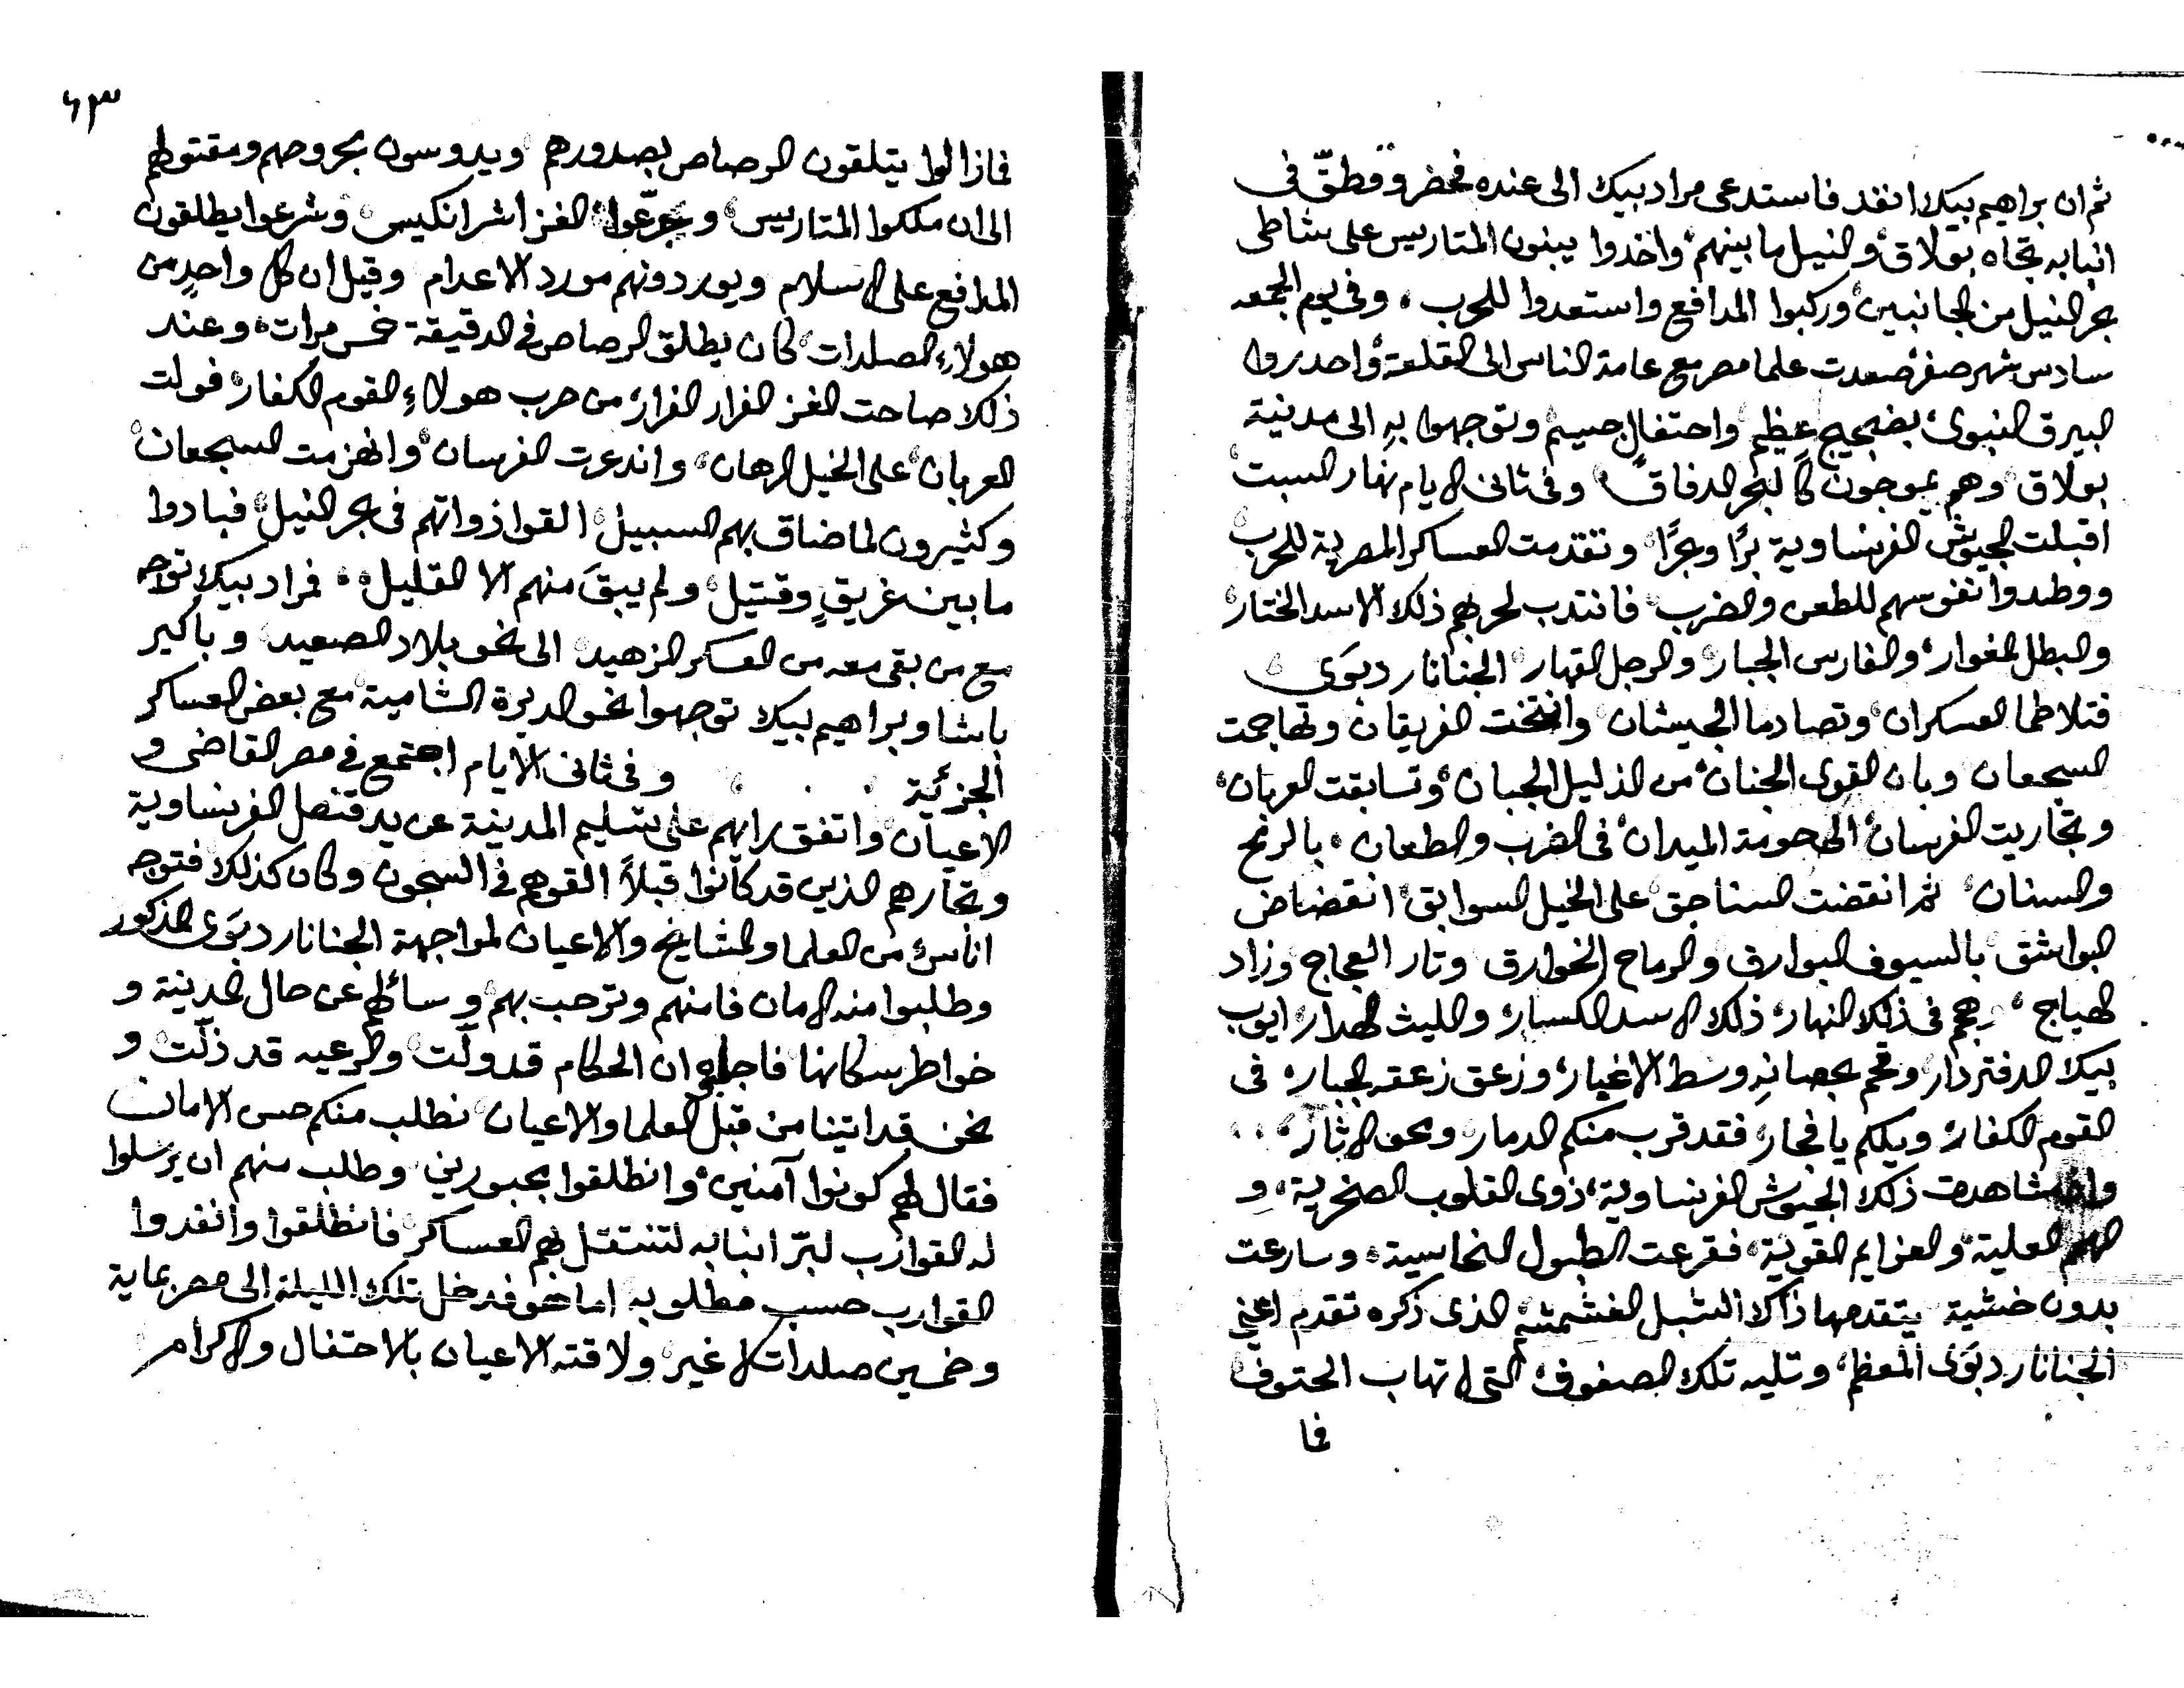 ثم ان براهيم بيك انفد فاستدعى مراد بيك الى عنده فحضر وقطّن فى
انبابه تجاه بولاق والنيل ما بينهم واخدوا يبنون المتاريس على شاطى
بحر النيل من الجانبين وركبوا المدافع واستعدوا للحرب، وفى يوم الجمعه
سادس شهر صفر صعدت علما مصر مع عامة الناس الى القلعة واحدروا
البيرق النبوى بضجيج عظيم واحتفال جسيم وتوجهوا بهِ الى مدينة
بولاق وهم يموجون كالبحر الدفاق وفى ثانى الايام نهار السبت
اقبلت الجيوش الفرنساوية برًا وبحرًا وتقدمت العساكر المصرية للحرب
ووطدوا نفوسهم للطعن والضرب فانتدب لحربهم ذلك الاسد الختار
والبطل المغوار والفارس الجبار والرجل القهار الجنانار دبوَى
فتلاطما العسكران وتصادما الجيشان وانتخت الفريقان وتهاججت
السجعان وبان القوى الجنان من الذليل الجبان وتسابقت العربان
وتجاريت الفرسان الى حومة الميدان فى الضرب والطعان، بالرمح
والسنان ثم انقضت السناجق على الخيل السوابق انقضاض
البواشق بالسيوف البوارق والرماح الخوارق وتار العجاج وزاد
الهياج هجم فى ذلك النهار ذلك الاسد الكسار والليث الهدار ايوب
بيك الدفتردار وقحم بحصانهِ وسط الاغيار وزعق زعقه الجباره فى
القوم الكفار ويلكم يا فجار فقد قرب منكم الدمار ومحق الاثار
شاهدت ذلك الجيوش الفرنساوية ذوى القلوب الصخرية، و
الهمم العلية والعزايم القوية فقرعت الطبول النحاسية، وسارعت
بدون خشية يتقدمها ذاك الشبل الغشمشم الذى ذكره تقدم اعني
الجنانار دبوَى المعظم، وتليه تلك الصفوف التى لا تهاب الحتوف
فما
٦٣
فمازالوا يتلقون الرصاص بصدورهم ويدوسون مجروحهم ومقتولهم
الى ان ملكوا المتاريس وجرّعوا الغز اشر انكيس وشرعوا يطلقون
المدافع على الاسلام ويوردونهم مورد الاعدام وقيل ان كل واحدٍ من
هولاءِ الصلدات كان يطلق الرصاص فى الدقيقة خمس مرات، وعند
ذلك صاحت الغز الفرار الفرار من حرب هولاءِ القوم الكفار فولت
العربان على الخيل الرهان واندعرت الفرسان وانهزمت السجعان
وكثيرون لما ضاق بهم السبيل القوا ذواتهم فى بحر النيل فبادوا
ما بين غريقٍ وقتيل ولم يبقَ منهم الا القليل، فمراد بيك توجه
مع من بقى معه من العسكر الزهيد الى نحو بلاد الصعيد وباكير
باشا وبراهيم بيك توجهوا نحو الديرة الشامية مع بعض العساكر
الجزئية وفى ثانى الايام اجتمع فى مصر القاضى و
الاعيان واتفق رايهم على تسليم المدينة عن يد قنصل الفرنساوية
وتجارهم الذين قد كانوا قبلاً القوهم فى السجون وكان كذلك فتوجه
اناسٌ من العلما والمشايخ والاعيان لمواجهة الجنانار دبوَى المذكور
وطلبوا منه الامان فامنهم وترحب بهم وسائلهم عن حال المدينة و
خواطر سكانها فاجابوه ان الحكام قد ولّت والرعيه قد ذلّت و
نحن قد اتينا من قبل العلما والاعيان نطلب منكم حسن الامان
فقال لهم كونوا آمنين وانطلقوا مجبورين وطلب منهم ان يرسلوا
له القوارب لبرّ انبابه لتنتقل بهم العساكر فانطلقوا وانفدوا
القوارب حسب مطلوبه اما هو فدخل تلك الليلة الى مصر بماية
وخمسين صلدات لا غير ولاقته الاعيان بالاحتفال والاكرام